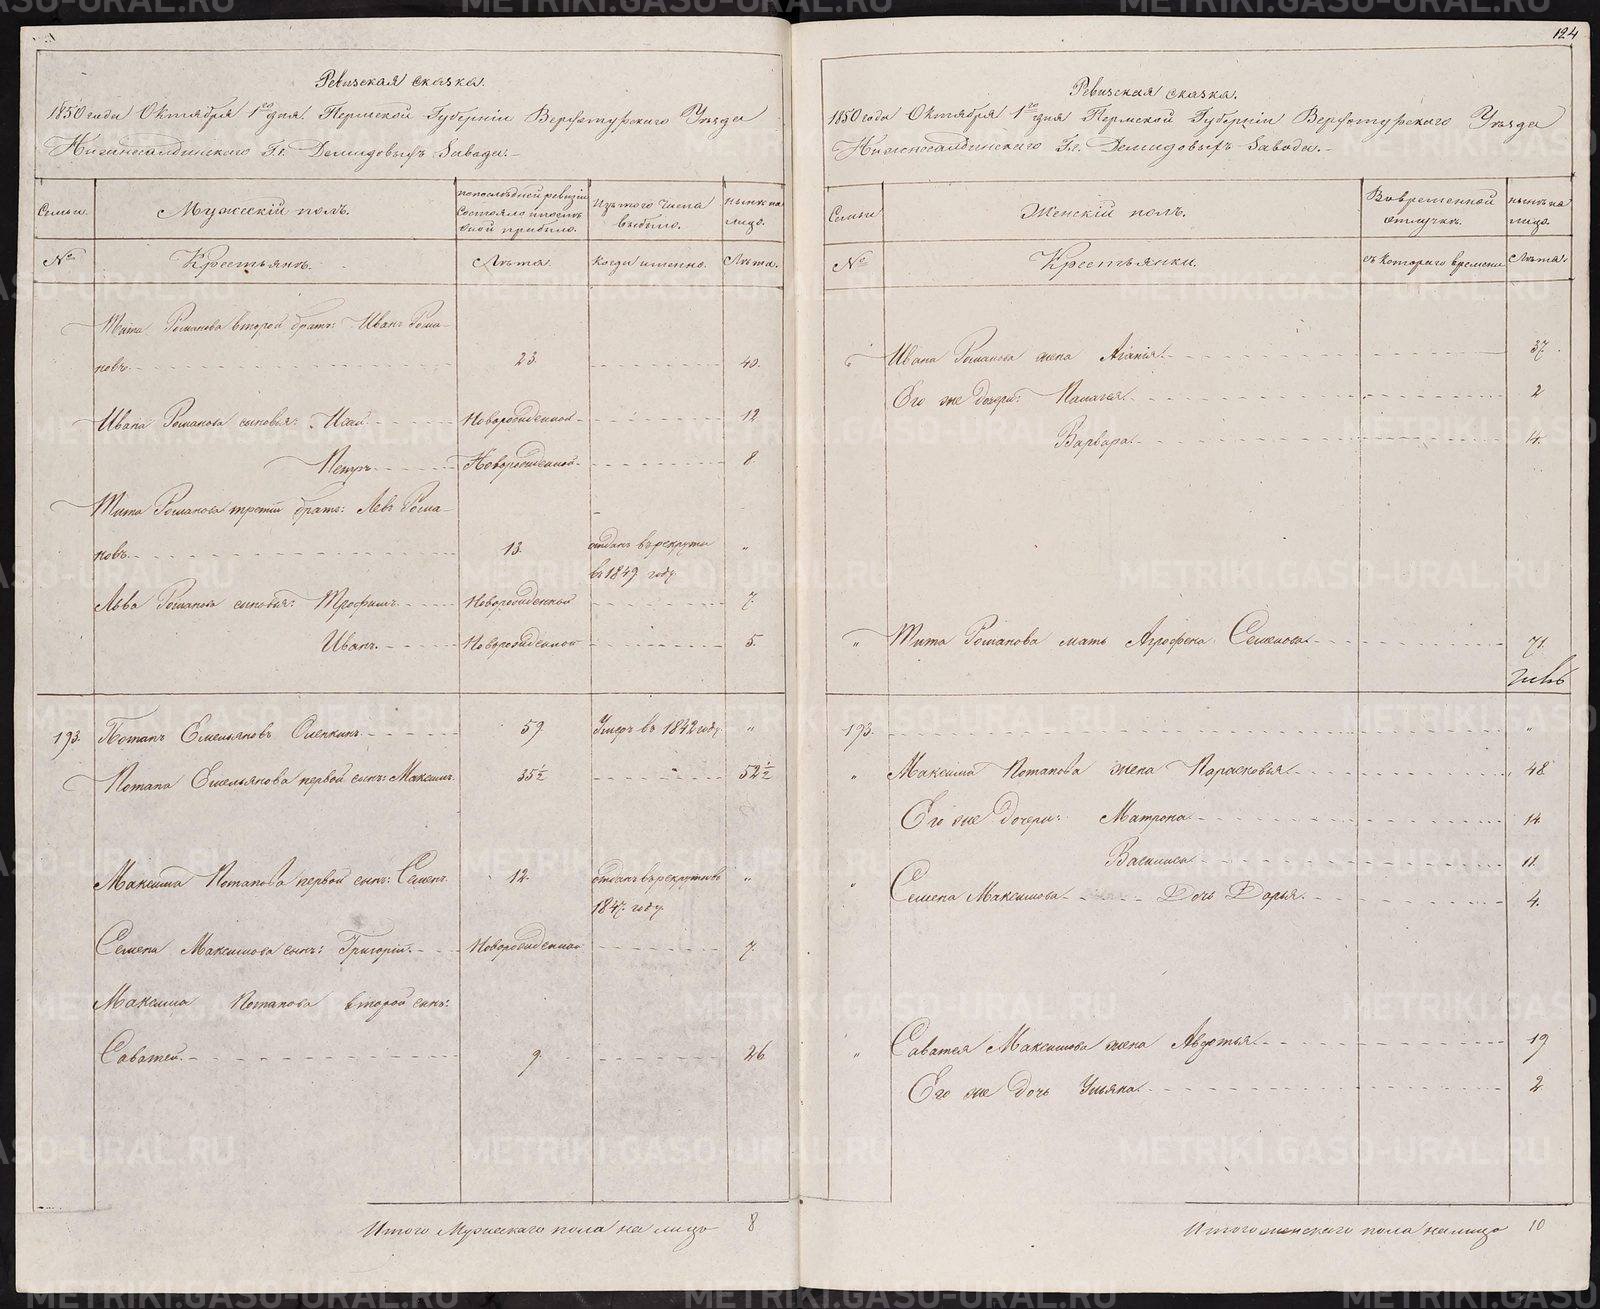 Ревизская сказка.
1850 года Октября 1го дня. Пермской Губернии Верхотурского Уѣзда
Нижнесалдинского Гг. Демидовыхъ Завода.
Семьи.
Мужескій полъ.
по последней ревизіи
состояло и послѣ
оной прибыло.
Изъ того числа
выбыло.
нынѣ на
лицо.
№
Крестьянъ.
Лѣта.
Когда именно.
Лѣта.
Тита Романова второй братъ: Иванъ Рома-
новъ. 23. 40.
Ивана Романова сыновья: Исай Новорожденной 12
Петръ Новорожденной 8.
Тита Романова третій братъ: Левъ Рома-
новъ. 13. отданъ въ рекруты „
въ 1849 году
Льва Романова сыновья: Трофимъ Новорожденной 7.
Иванъ. Новорожденной 5.
193. Потапъ Емельяновъ Опенкинъ 59 Умеръ въ 1842 году „
Потапа Емельянова первой сынъ: Максимъ. 35½ 52½
Максима Потапова первой сынъ: Семенъ. 12. отданъ въ рекруты въ „
1847 году
Семена Максимова сынъ: Григорій. Новорожденной 7.
Максима Потапова второй сынъ:
Саватей. 9 26
Итого Мужескаго пола на лицо 8
124
Ревизская сказка.
1850 года Октября 1го дня Пермской Губерніи Верхотурскаго Уѣзда
Нижнесалдинскаго Гг. Демидовыхъ Завода.
Семьи
Женскій полъ.
Во временной
отлучкѣ.
нынѣ на
лицо.
№
Крестьянки.
съ котораго времени
Лѣта.
Ивана Романова жена Агапія 37.
Его же дочери: Палагея 2
Варвара 4.
„ Тита Романова мать Агрофена Семенова 71.
193. „
„ Максима Потапова жена Парасковья 48
Его же дочери: Матрона 14
Василиса 11.
„ Семена Максимова Дочь Дарья. 4.
„ Саватея Максимова жена Авдотья 19
Его же дочь Ульяна 2.
Итого женскаго пола на лицо 10
METRIKI.GASO-URAL.RU